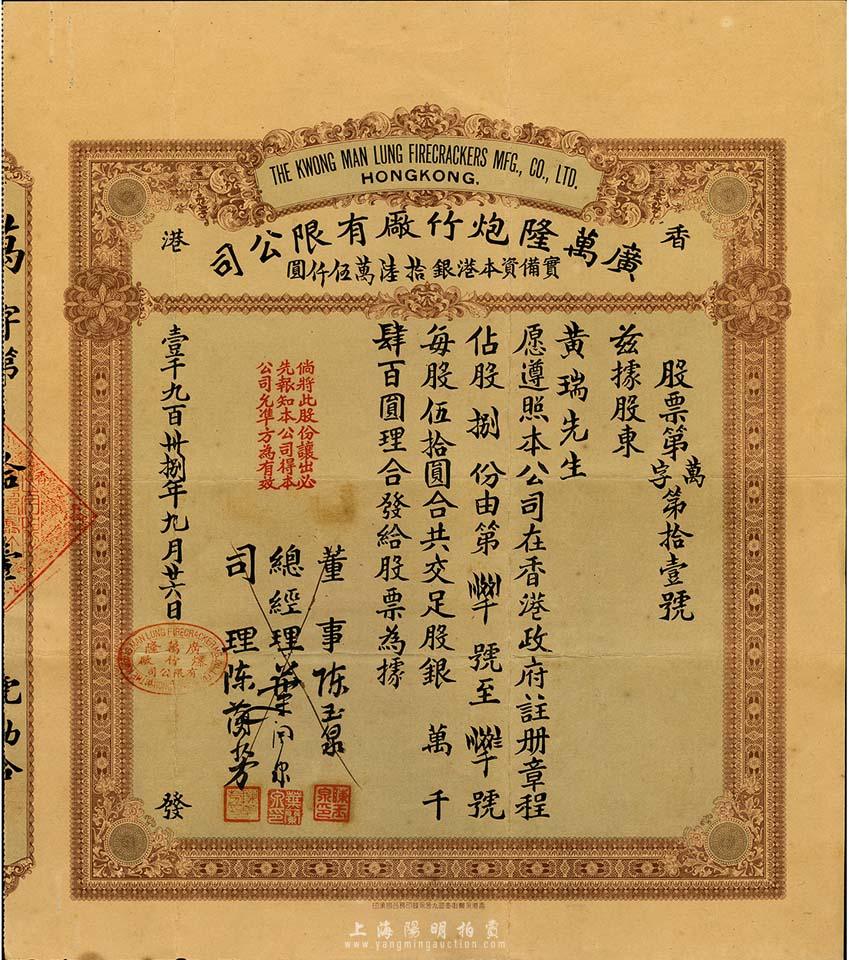 THE KWONG MAN LUNG FIRECRACKERS MFG., CO., LTD.
HONGKONG.
香港
廣萬隆炮竹廠有限公司
實備資本港銀拾陸萬伍仟圓
股票第萬字第拾壹號
茲據股東
黃瑞先生
愿遵照本公司在香港政府註册章程
佔股捌份由第號至號
每股伍拾圓合共交足股銀萬千
肆百圓理合發給股票為據
董事陈玉泉
總經理葉
司理陈
發
倘將此股份讓出必
先報知本公司得本
公司允準方為有效
壹千九百卅捌年九月廿六日
廣萬隆
爆竹廠
有限公司
萬字第拾壹號
上海陽明拍賣
www.yangmingauction.com